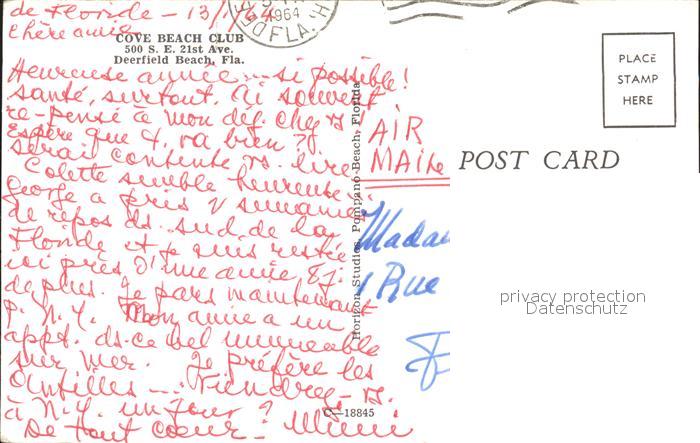 de Floride - 13/1/64
Chère amie
COVE BEACH CLUB
500 S. E. 21st Ave.
Deerfield Beach, Fla.
1964
FLA.
Heureuse année... si possible!
santé, surtout. Ai souvent
re-pensé à mon déj. chez vs!
Espère que tt. va bien?
Serais contente vs. lire
Colette semble heureuse.
George a pris 1 semaine
de repos ds. sud de la
Floride et je suis restée
ici près d'une amie 8 j.
de plus. Je pars maintenant
p. N.Y. Mon amie a un
appt. ds. ce bel immeuble
sur mer. Je préfère les
Antilles ... Viendrez-vs.
à N.Y. un jour?
De tout coeur - Mimi
Horizon Studios, Pompano-Beach, Florida
C-18845
AIR
MAIL
PLACE
STAMP
HERE
POST CARD
Madam
1 Rue
privacy protection
Datenschutz